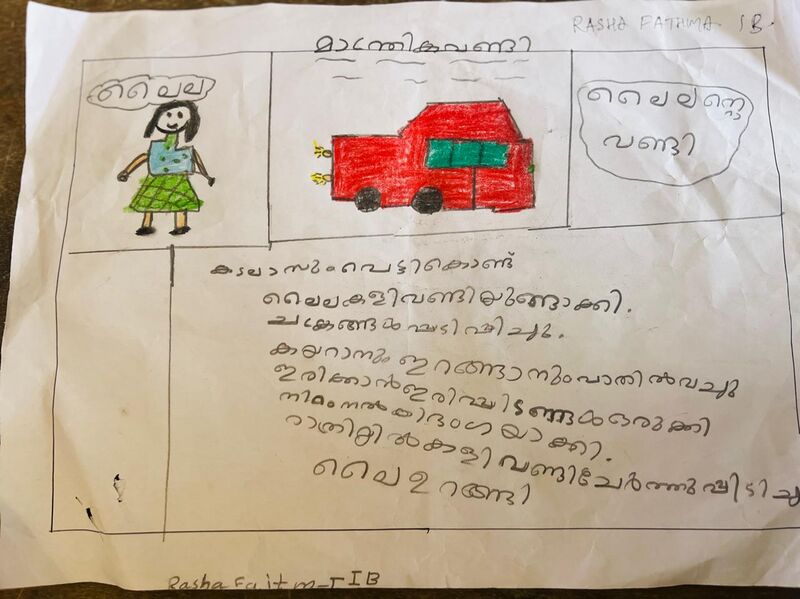 RASHA FATHMA IB.
മാന്ത്രികവണ്ടി
ലൈല
ലൈലന്റെ
വണ്ടി
കടലാസുംപെട്ടികൊണ്ട്
ലൈലകളിവണ്ടിയുണ്ടാക്കി.
ചക്രങ്ങൾഘടിപ്പിച്ചു.
കയറാനും ഇറങ്ങാനുംവാതിൽവച്ചു
ഇരിക്കാൻഇരിപ്പിടങ്ങൾഒരുക്കി
നിറംനൽകിഭംഗയാക്കി.
രാത്രിയിൽകളിവണ്ടിചേർത്തുപിടിച്ചു
ലൈഉറങ്ങി
IIB